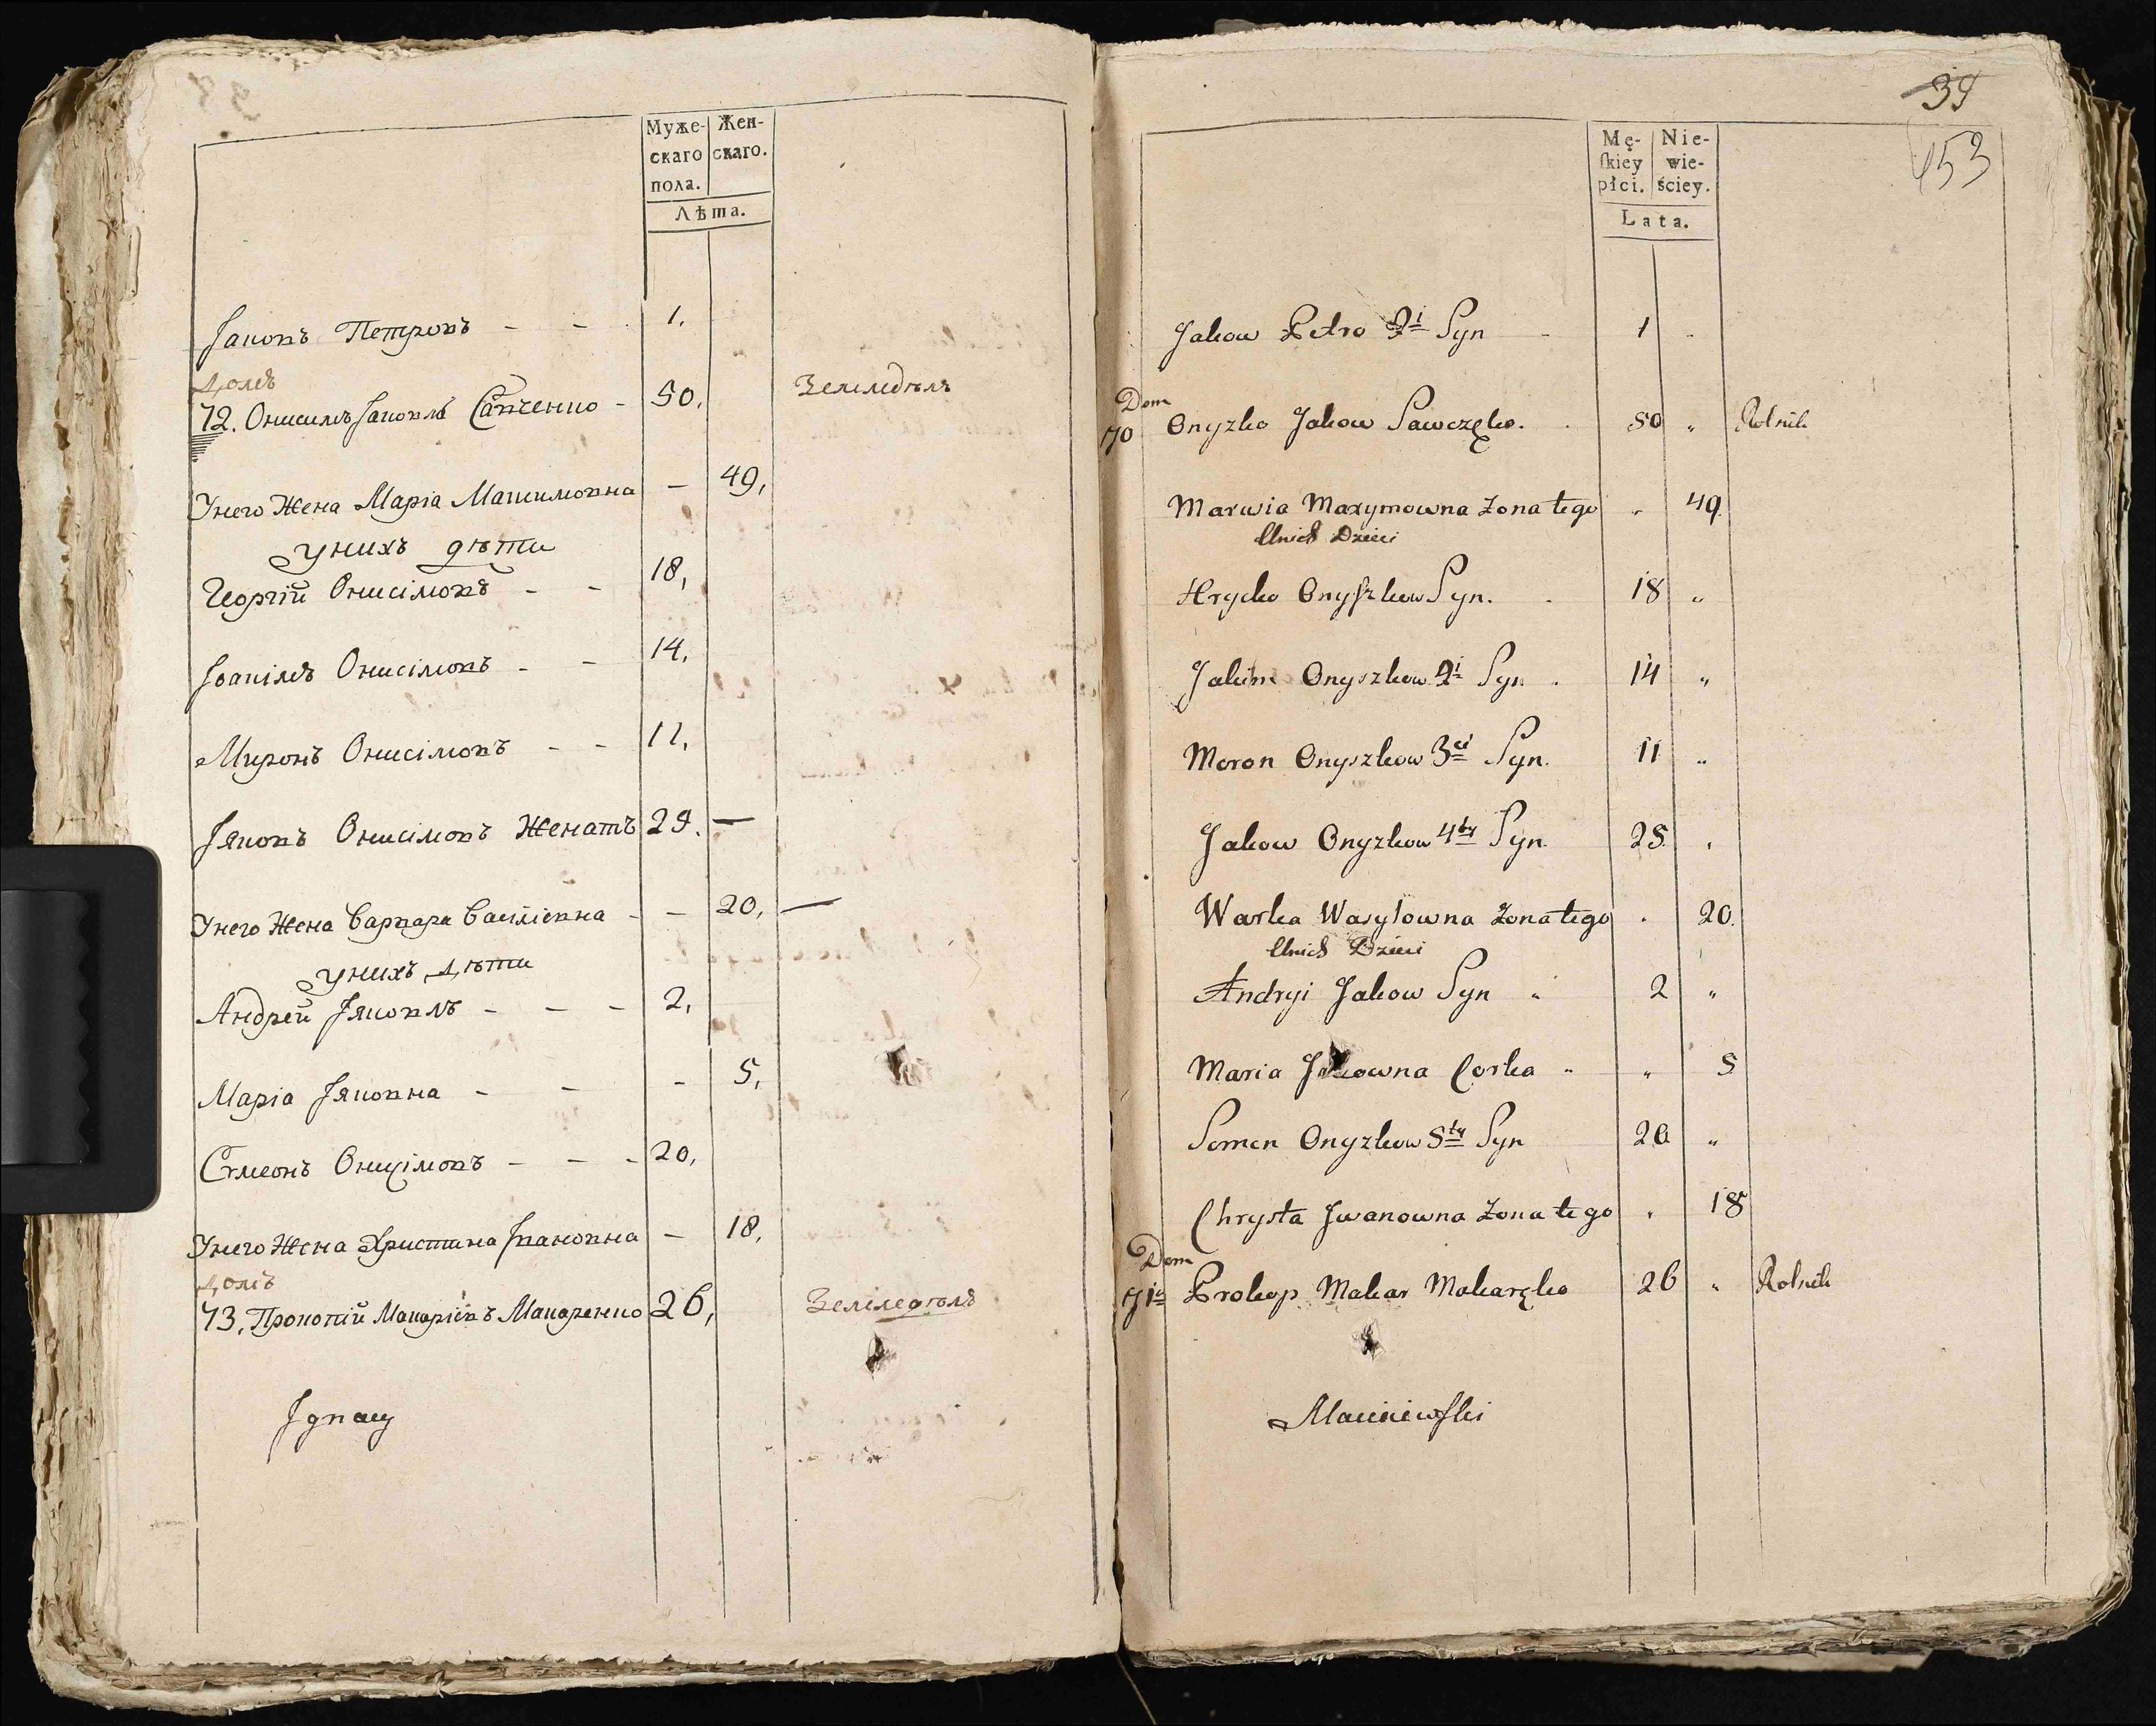 Муже-
скаго
пола.
Жен-
скаго.
Лѣта.
Іаковъ Петровъ - - 1,
Домъ
72. Онисимъ Іаковлѣ Савченко - 50, Земледѣлъ
У него Жена Маріа Махимовна - 49,
у нихъ дѣти
Георгій Онисімовъ - - 18,
Іоакімъ Онисімовъ - - 14,
Миронъ Онисімовъ - - 11,
Іяковъ Онисімовъ Женатъ 29. —
У него Жена Варвара Василіевна - - 20, —
у нихъ дѣти
Андрей Іяковлъ - - - 2,
Маріа Іяковна - - - 5,
Сѵмеонъ Онисімовъ - - - 20,
У него Жена Христина Івановна - 18,
Домъ
73, Прокопій Макаріевъ Макаренко 26, Земледѣлъ
Ignacy
39
453
Mę-
ſkiey
płci.
Nie-
wie-
ściey.
Lata.
Jakow Petro 2i Syn 1
Dom
70 Onyzko Jakow Sawczęko. 50 „ Rolnik
Marwia Maxymowna Zona tego „ 49
Unich Dzieci
Hrycko Onyſzkow Syn. 18 „
Jakim Onyszkow 2i Syn . 14 „
Moron Onyszkow 3ci Syn. 11 „
Jakow Onyzkow 4ty Syn. 25 „
Warka Wasylowna Zona tego . 20.
Unich Dzieci
Andryi Jakow Syn „ 2 „
Maria Jakowna Corka „ „ 5
Semen Onyzkow 5ty Syn 20 „
Chrysta Jwanowna Zona tego „ 18
Dom
71 Prokop Makar Makaręko 26 „ Rolnik
Maciniewſki